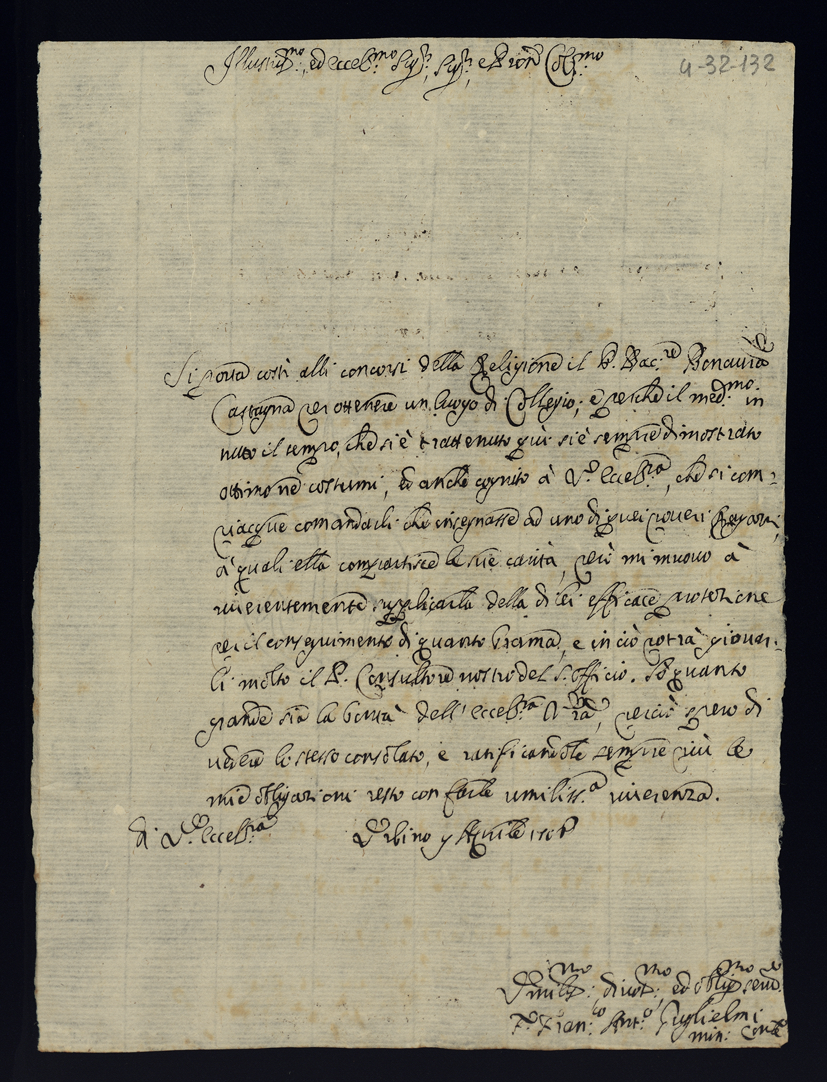 Illustr.mo, ed eccel.mo Sig.r, Sig.r, e Pron Col.mo
4-32-132
Si porta costì alli concorsi della Religione il P. Bac.re Bonaura
Castagna per ottenere un luogo di Collegio; e perche il med.mo in
tutto il tempo, che si è trattenuto quì si è sempre dimostrato
ottimo ne costumi, ed anche cognito à V. Eccel.za, che si com-
piacque comandarli che insegnasse ad uno di quei poueri Ragazzi,
à quali ella compartisce le sue carità, però mi muouo à
riuerentemente supplicarla della di lei efficace protezione
per il conseguimento di quanto brama, e in ciò potrà giouar-
li molto il P. Consultore nostro del S. Officio. Sò quanto
grande sia la bontà dell' Eccel.za V.ra, perciò spero di
uedere lo stesso consolato, e ratificandole sempre più le
mie obligazioni resto con farle umiliss.a riuerenza.
di V. Eccel.za Vrbino 9 Aprile
Vmil.mo, diuot.mo, ed oblig.mo seru.
F. Fran.co Ant.o Guglielmi
min: Con.le